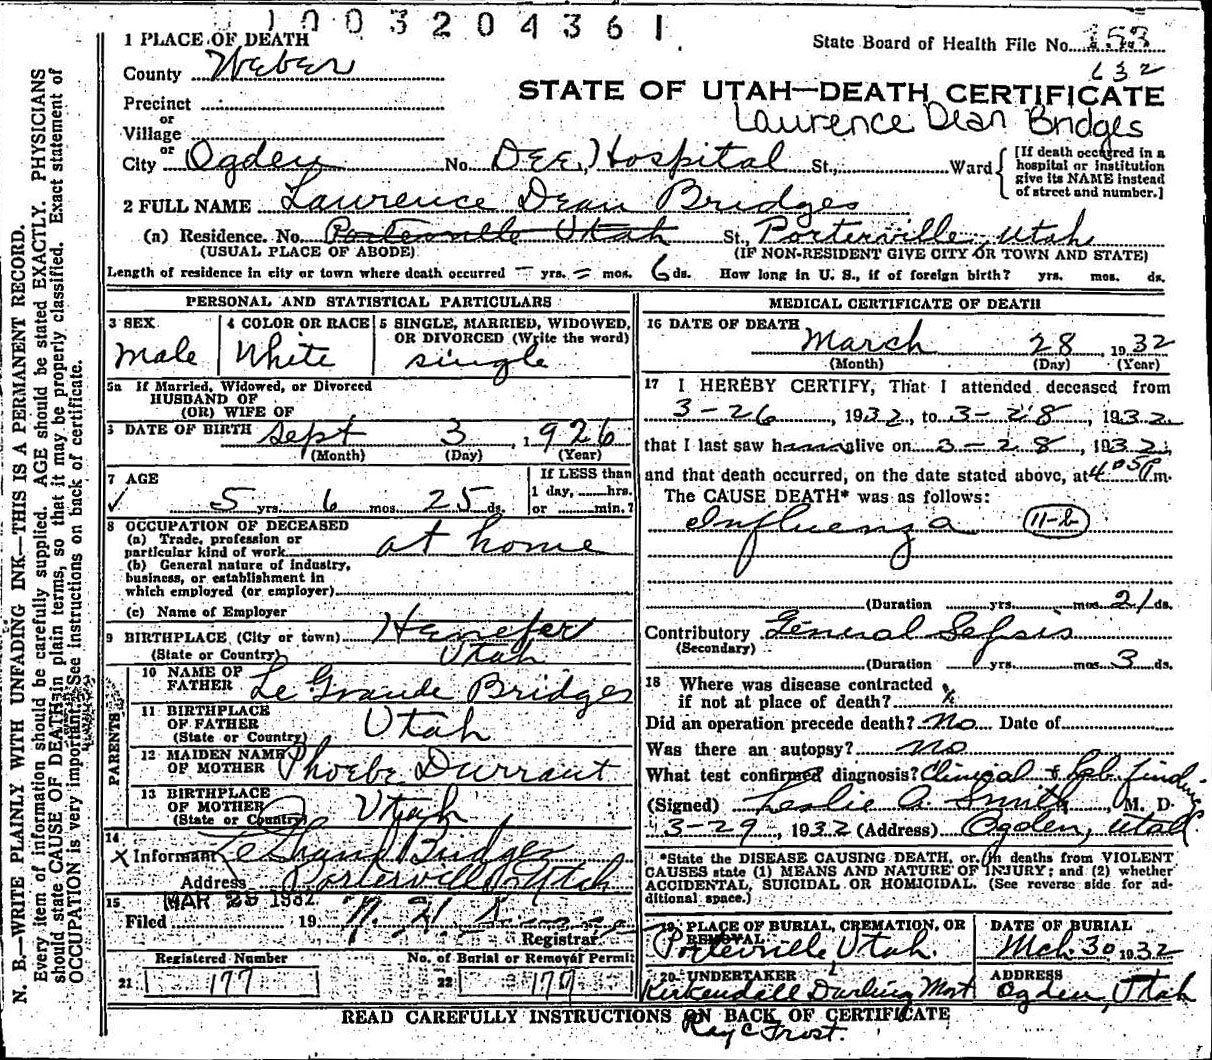 1003204361
1 PLACE OF DEATH
State Board of Health File No. 153
County Weber
632
STATE OF UTAH—DEATH CERTIFICATE
Precinct
or
Village
Laurence Dean Bridges
or
City Ogden No. Dee, Hospital St., Ward
[If death occurred in a hospital or institution give its NAME instead of street and number.]
2 FULL NAME Laurence Dean Bridges
(a) Residence. No. Porterville Utah St., Porterville, Utah
(USUAL PLACE OF ABODE) (IF NON-RESIDENT GIVE CITY OR TOWN AND STATE)
Length of residence in city or town where death occurred — yrs. = mos. 6 ds. How long in U. S., if of foreign birth? yrs. mos. ds.
PERSONAL AND STATISTICAL PARTICULARS
3 SEX
Male
4 COLOR OR RACE
White
5 SINGLE, MARRIED, WIDOWED, OR DIVORCED (Write the word)
single
5a If Married, Widowed, or Divorced
HUSBAND OF
(OR) WIFE OF
DATE OF BIRTH Sept 3, 1926
(Month) (Day) (Year)
7 AGE
5 yrs. 6 mos. 25 ds.
If LESS than
1 day, hrs.
or min.?
8 OCCUPATION OF DECEASED
(a) Trade, profession or
particular kind of work at home
(b) General nature of industry,
business, or establishment in
which employed (or employer)
(c) Name of Employer
9 BIRTHPLACE (City or town) Henefer
(State or Country) Utah
PARENTS
10 NAME OF
FATHER Le Grande Bridges
11 BIRTHPLACE
OF FATHER Utah
(State or Country)
12 MAIDEN NAME
OF MOTHER Phoebe Durrant
13 BIRTHPLACE
OF MOTHER Utah
(State or Country)
14
X Informant Le Grand Bridges
Address Porterville Utah
15 MAR 29 1932
Filed 19
Registrar
Registered Number
21 177
No. of Burial or Removal Permit
22 177
MEDICAL CERTIFICATE OF DEATH
16 DATE OF DEATH
March 28, 1932
(Month) (Day) (Year)
17 I HEREBY CERTIFY, That I attended deceased from
3-26, 1932, to 3-28, 1932
that I last saw him alive on 3-28, 1932,
and that death occurred, on the date stated above, at 4:05 P.m.
The CAUSE DEATH* was as follows:
Influenza 11-b
(Duration yrs. mos. 21 ds.
Contributory General Sepsis
(Secondary)
(Duration yrs. mos. 3 ds.
18 Where was disease contracted
if not at place of death?
Did an operation precede death? No Date of
Was there an autopsy? no
What test confirmed diagnosis? Clinical & Lab. finding
(Signed) Leslie A. Smith, M. D.
3-29, 1932 (Address) Ogden, Utah
*State the DISEASE CAUSING DEATH, or, in deaths from VIOLENT
CAUSES state (1) MEANS AND NATURE OF INJURY; and (2) whether
ACCIDENTAL, SUICIDAL OR HOMICIDAL. (See reverse side for ad-
ditional space.)
19 PLACE OF BURIAL, CREMATION, OR
REMOVAL
Porterville Utah.
DATE OF BURIAL
Mch. 30 1932
20 UNDERTAKER
Kirkendall Darling Mort
ADDRESS
Ogden, Utah
READ CAREFULLY INSTRUCTIONS ON BACK OF CERTIFICATE
Ray C Frost.
N. B.—WRITE PLAINLY WITH UNFADING INK—THIS IS A PERMANENT RECORD.
Every item of information should be carefully supplied. AGE should be stated EXACTLY. PHYSICIANS
should state CAUSE OF DEATH in plain terms, so that it may be properly classified. Exact statement of
OCCUPATION is very important. See instructions on back of certificate.